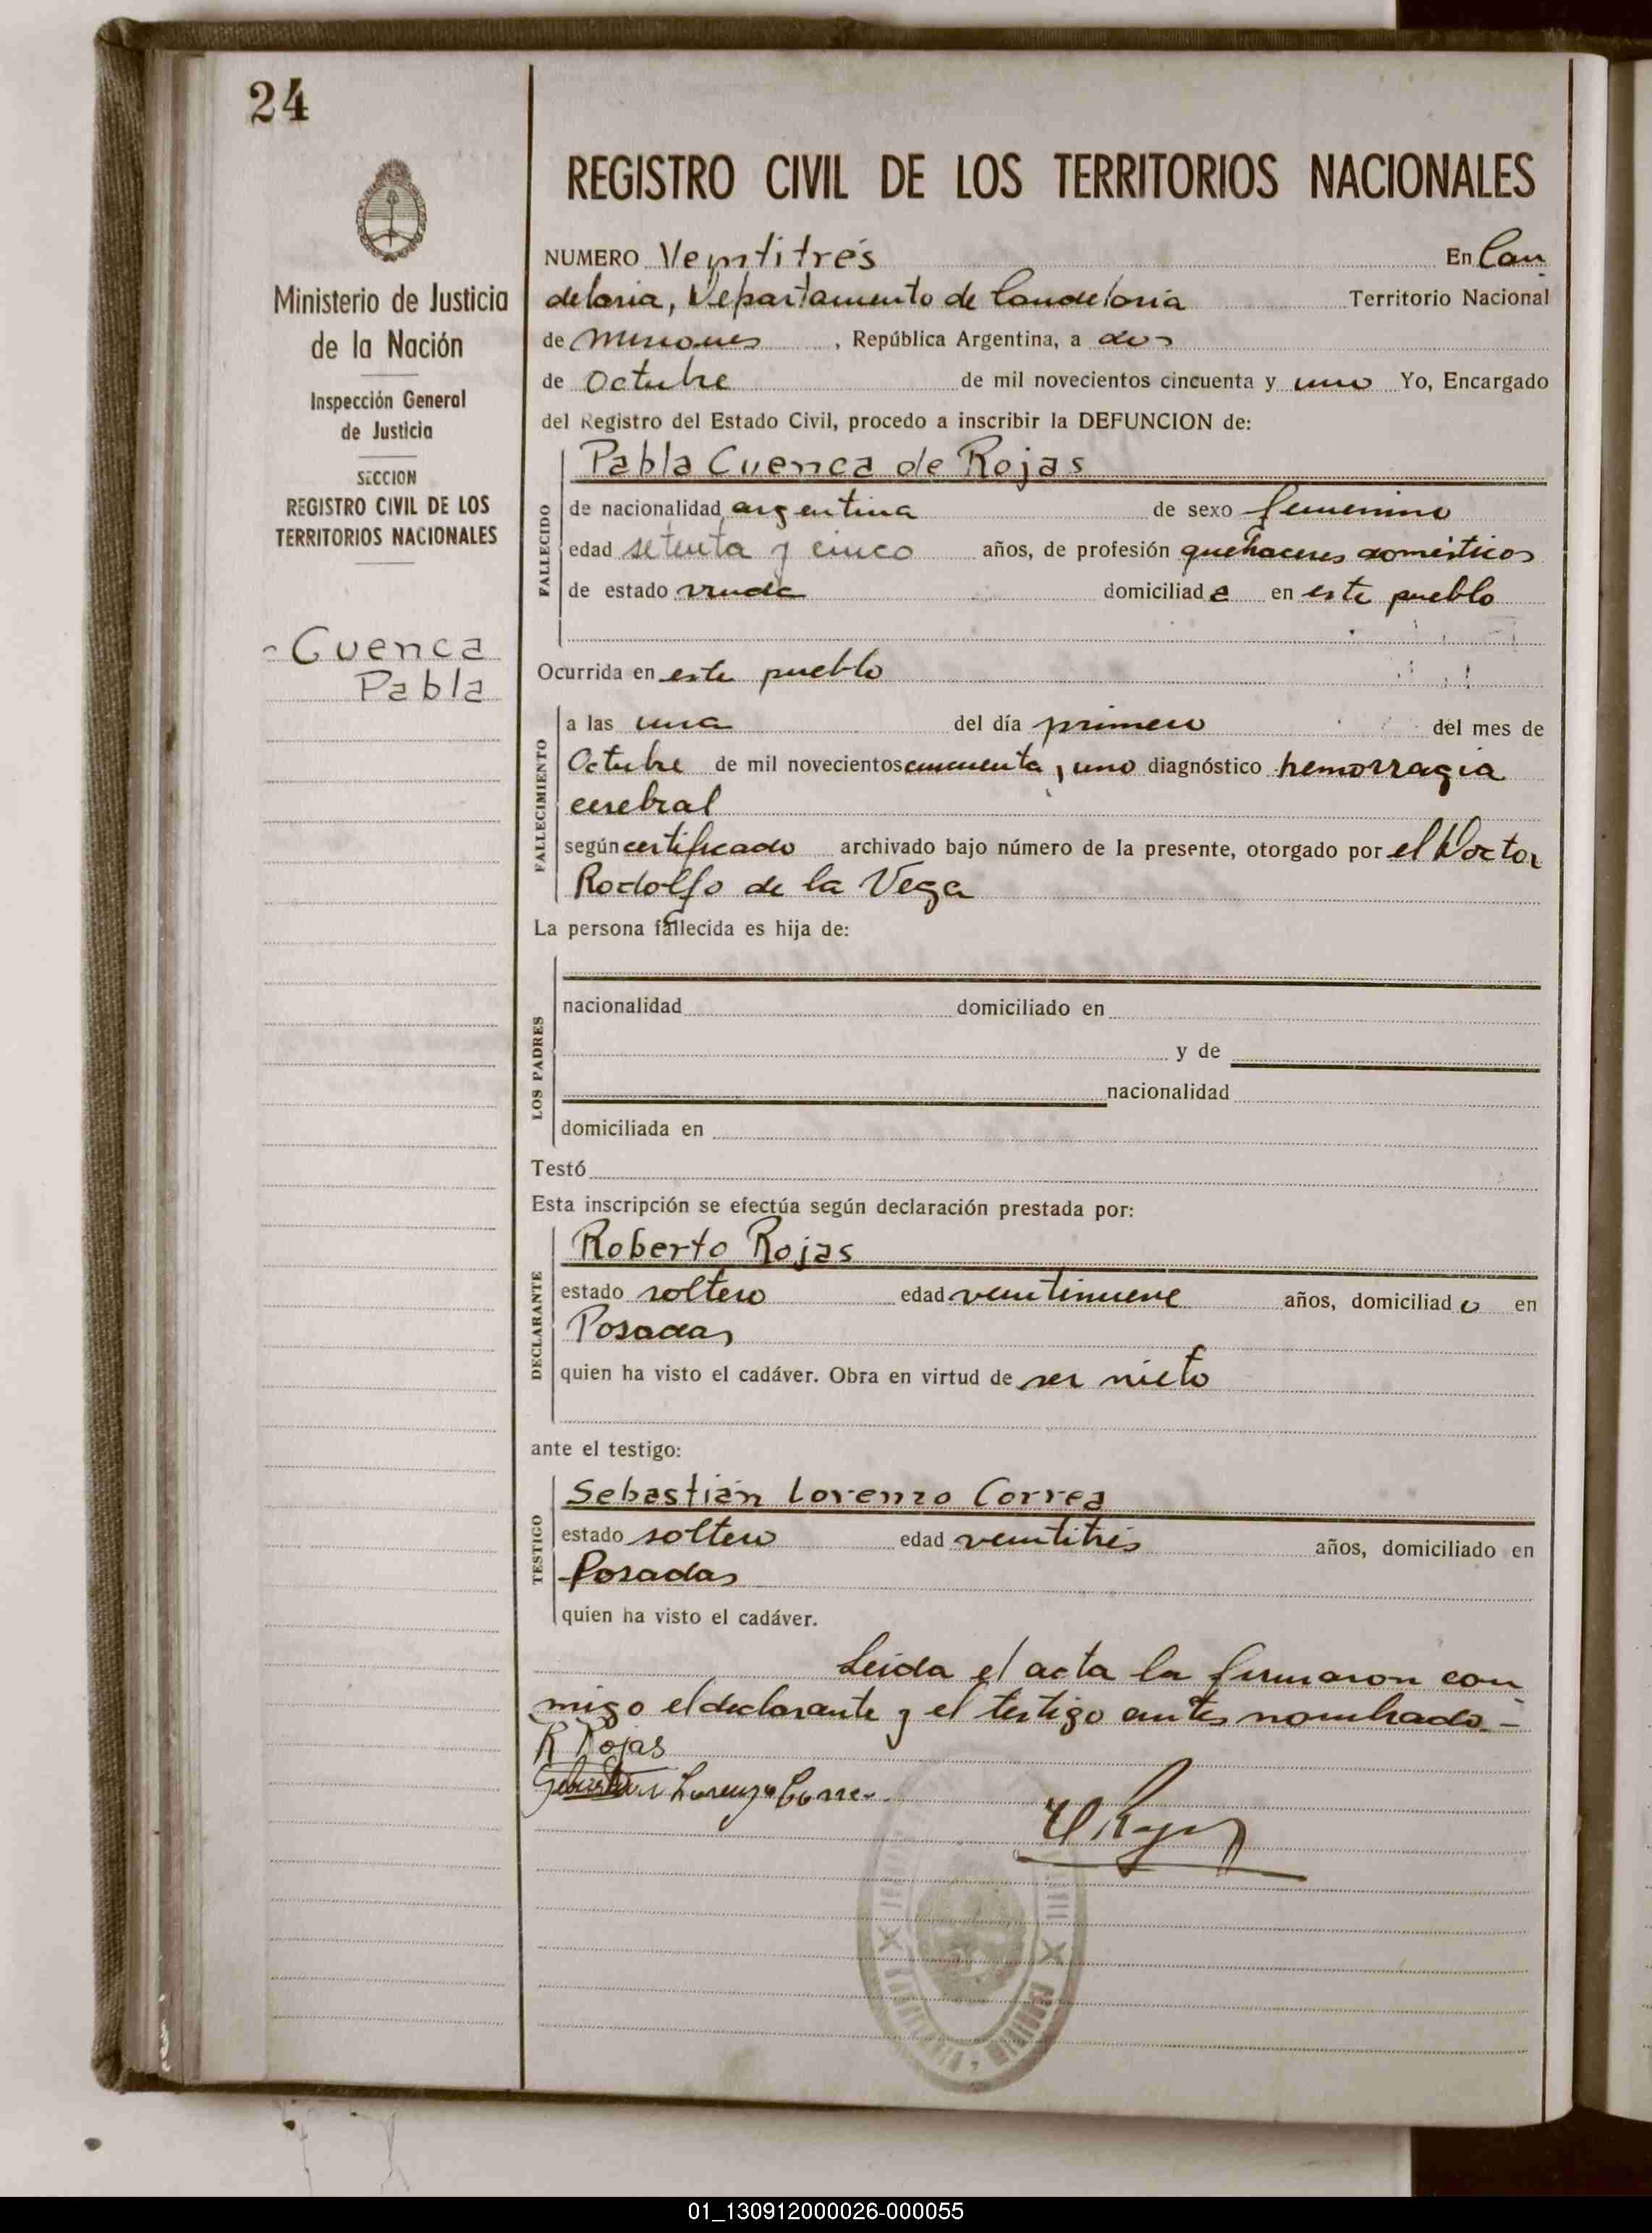 24
Ministerio de Justicia
de la Nación
Inspección General
de Justicia
SECCION
REGISTRO CIVIL DE LOS
TERRITORIOS NACIONALES
Cuenca
Pabla
REGISTRO CIVIL DE LOS TERRITORIOS NACIONALES
NUMERO Veintitrés En Can
delaria, Departamento de Candelaria Territorio Nacional
de Misiones, República Argentina, a dos
de Octubre de mil novecientos cincuenta y uno Yo, Encargado
del Registro del Estado Civil, procedo a inscribir la DEFUNCION de:
FALLECIDO
Pabla Cuenca de Rojas
de nacionalidad argentina de sexo femenino
edad setenta y cinco años, de profesión quehaceres domésticos
de estado viuda domiciliada en este pueblo
Ocurrida en este pueblo
FALLECIMIENTO
a las una del día primero del mes de
Octubre de mil novecientos cincuenta y uno diagnóstico hemorragia
cerebral
según certificado archivado bajo número de la presente, otorgado por el Doctor
Rodolfo de la Vega
La persona fallecida es hija de:
LOS PADRES
nacionalidad domiciliado en
y de
nacionalidad
domiciliada en
Testó
Esta inscripción se efectúa según declaración prestada por:
DECLARANTE
Roberto Rojas
estado soltero edad veintinueve años, domiciliado en
Posadas
quien ha visto el cadáver. Obra en virtud de ser nieto
ante el testigo:
TESTIGO
Sebastián Lorenzo Correa
estado soltero edad veintitrés años, domiciliado en
Posadas
quien ha visto el cadáver.
Leida el acta la firmaron con
migo el declarante y el testigo antes nombrado.-
R Rojas
Sebastian Lorenzo Correa
01_130912000026-000055